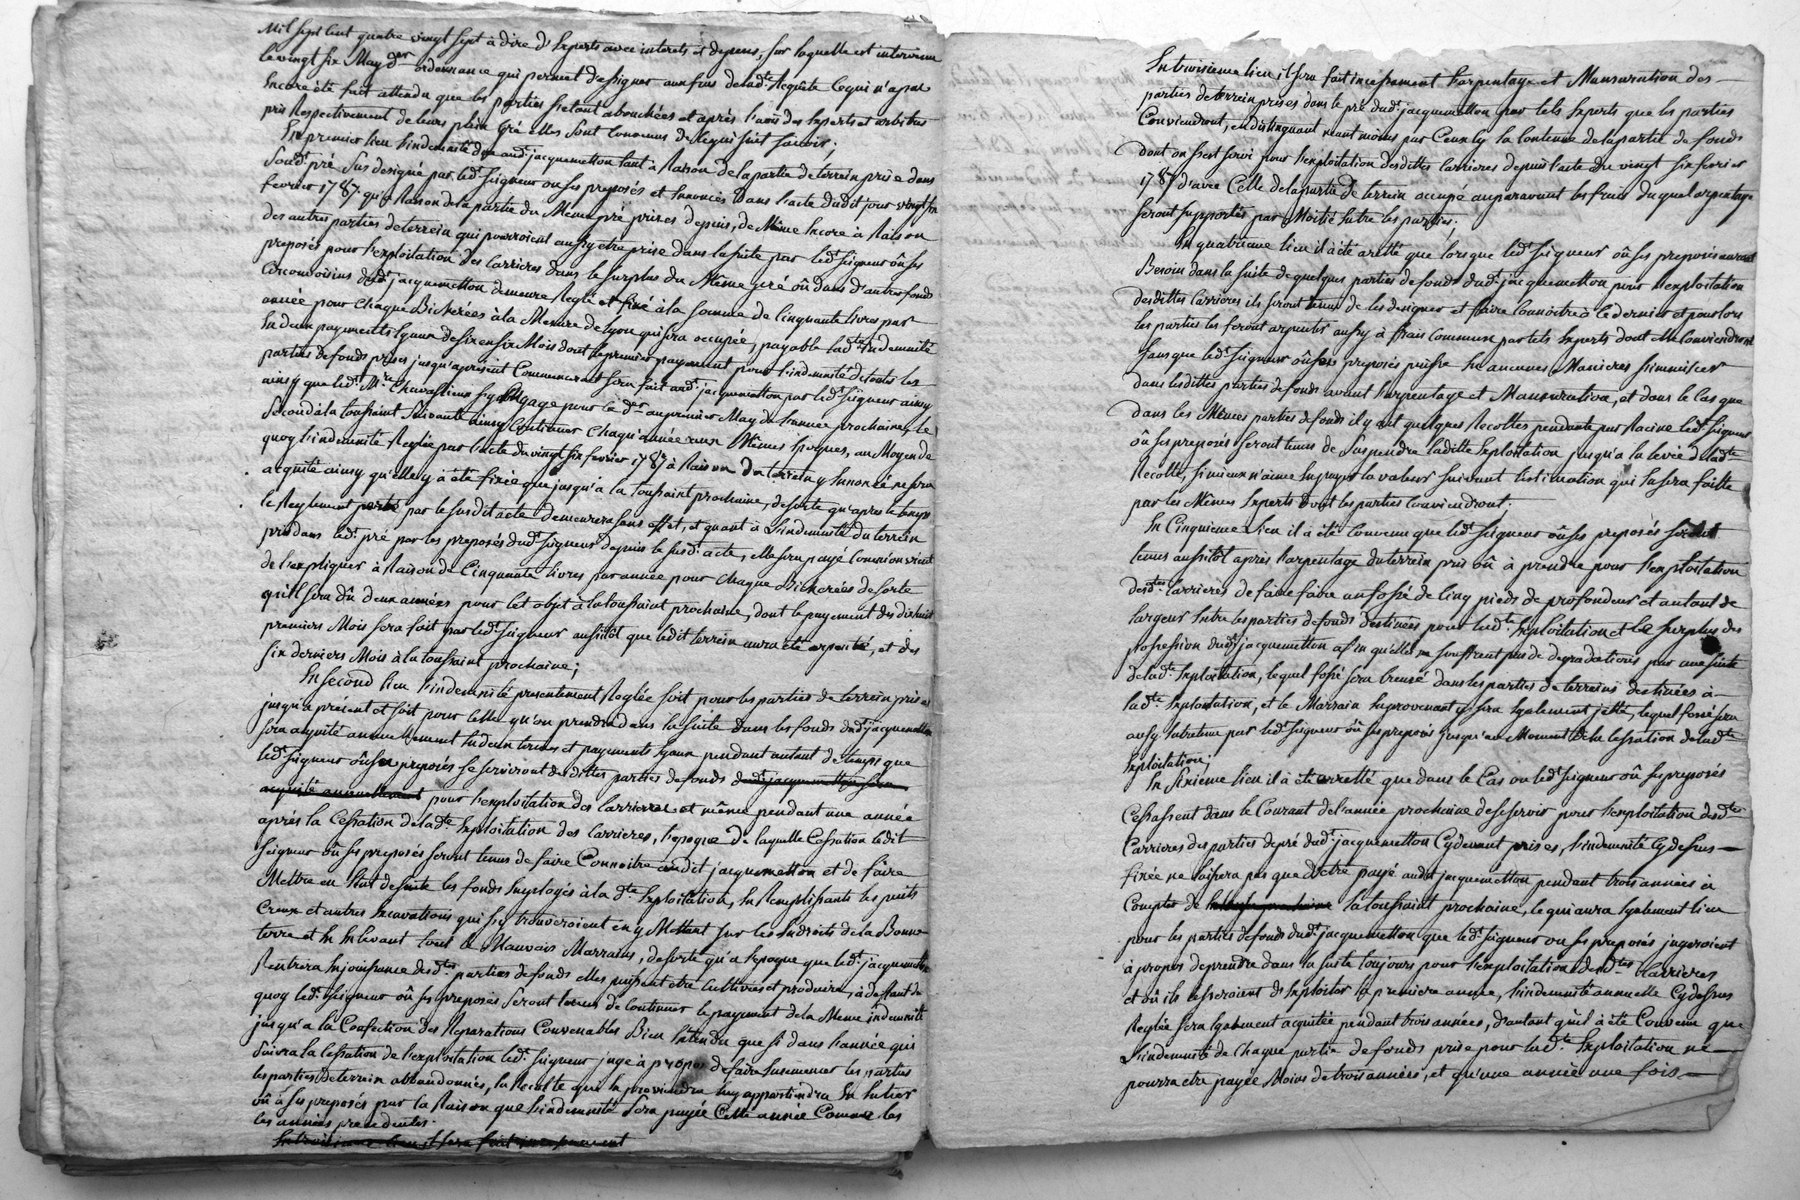 Mil sept cent quatre vingt sept à dire d'Experts avec interets et depens, sur laquelle est intervenue
le vingt six May der ordonnance qui permet d'assigner aux fins de lade. Requête Ce qui n'a pas
Encore été fait attendu que les parties s'étant abouchées et après l'avis des Experts et arbitres
pris Respectivement de leurs plein Gré elles sont Convenus de Ce qui suit savoir;
En premier lieu l'indemnité due aud. jacquemetton tant à Raison de la partie de terrein prise dans
soud. pré sus designé par led. seigneur ou ses preposés et Enoncés dans l'acte dudit jour vingt six
fevrier 1787. qu'à Raison de la partie du Même pré prises depuis, de Même Encore à Raison
des autres parties de terrein qui pourroient aussy etre prise dans la suite par led. seigneur oû ses
preposés pour l'exploitation des Carrieres dans le surplus du Même pré oû dans d'autres fonds
Circonvoisins dud. jacquemetton demeure Reglé et fixé à la somme de Cinquante livres par
année pour chaque Bicherées à la Mesure de Lyon qui sera occupée, payable lade. indemnité
En deux payements Egaux de six en six Mois dont le premier payement pour l'indemnité de toutes les
parties de fonds prises jusqu'apresent Commencera sera fait aud. jacquemetton par led. seigneur ainsy
ainsy que led. Mre. Chavassieux s'y oblige pour le der. au premier May de l'année prochaine, le
second à la toussaint suivante ainsy Continuer chaqu'année aux Mêmes Epoques, au Moyen de
quoy l'indemnité Reglée par l'acte du vingt six fevrier 1787 à Raison du terrein y Enoncé ne sera
acquité ainsy qu'elle y à été fixée que jusqu'a la toussaint prochaine, desorte qu'apres ce temps
le Reglement porté par le susdit acte demeurera sans effet, et quant à L'indemnité du terrein
pris dans led. pré par les preposés dud. seigneur depuis le susd. acte, elle sera payé Comme on vient
de l'expliquer à Raison de Cinquante livres par année pour chaque Bicherées de sorte
qu'il sera dû deux années pour cet objet à la toussaint prochaine, dont le payement des dixhuit
premiers Mois sera fait par led. seigneur aussitôt que ledit terrein aura été arpenté, et des
six derniers Mois à la toussaint prochaine;
En second lieu l'indemnité presentement Reglée soit pour les parties de terrein prises
jusqu'à présent et soit pour celle qu'on prendra dans la suite dans les fonds dud. jacquemetton
sera acquité annuellement En deux termes et payements Egaux pendant autant de temps que
led. seigneur oû ses preposés se serviront desdittes parties de fonds dud. jacquemetton sera
acquité annuellement pour l'exploitation des Carrieres et même pendant une année
après la Cessation de lade. Exploitation des Carrieres, l'epoque de laquelle Cessation ledit
seigneur oû ses preposés seront tenus de faire Connoitre audit jacquemetton et de faire
Mettre en Etat desuite les fonds Employés à la de. Exploitation, En Remplissants les puits
Creux et autres Excavations qui s'y trouveroient en y Mettant sur les Endroits de la Bonne
terre et En Enlevant tout le Mauvais Marrains, desorte qu'a l'epoque que led. jacquemetton
Rentrera En jouissance desdtes. parties de fonds elles puissent etre Cultivées et produire, à deffaut de
quoy led. seigneur oû ses preposés seront tenus de Continuer le payement de la Meme indemnité
jusqu'a la Confection des Reparations Convenables Bien Entendu que si dans l'année qui
suivra la Cessation de l'exploitation led. seigneur juge à propos de faire Ensemencer les parties
les parties de terrein abbandonnés, la Recolte qui En proviendra luy appartiendra En Entier
oû à ses preposés par la Raison que l'indemnité sera payée Cette année Comme les
les années precedentes.
En troisieme lieu il sera fait incessamment
En troisieme lieu, il sera fait incessament l'arpentage et Mansuration des
parties de terrein prises dans le pré dud. jacquemetton par tels Experts que les parties
Conviendront, en distinguant neant moins par Ceux Cy la Contenue de la partie de fonds
dont on s'est servi pour l'exploitation desdittes Carrieres depuis l'acte du vingt six fevrier
1787 d'avec Celle de la partie de terrein occupé auparavant les frais du quel arpentage
seront supportés par Moitié Entre les parties;
En quatrieme lieu il à été aretté que lorsque led. seigneur oû ses preposés auront
Besoin dans la suite de quelques parties de fonds dud. jacquemetton pour l'exploitation
desdittes Carrieres ils seront tenus de les designer et faire Connoitre à Ce dernier et pour lors
les parties les feront arpenter aussy à frais Communs par tels Experts dont Elle Conviendront
sans que led. seigneur oû ses preposés puisse En aucunes Manieres s'immiscer
dans lesdittes parties de fonds avant l'arpentage et Mansuration, et dans le Cas que
dans les Mêmes parties de fonds il y eut quelques Recoltes pendante par Racine led. seigneur
oû ses preposés seront tenus de suspendre laditte Exploitation jusqu'a la levée de lade.
Recolte, si mieux n'aime En payer la valeur suivant l'estimation qui En sera faitte
par les Mêmes Experts dont les parties Conviendront.
En Cinquieme Lieu il a été Convenu que led. seigneur oû ses preposés seront
tenus aussitôt après l'arpentage du terrein pris oû à prendre pour l'exploitation
desdtes. Carrieres de faire faire un fossé de Cinq pieds de profondeur et autant de
largeur Entre les parties de fonds destinées pour lade. Exploitation et le surplus des
possession dud. jacquemetton afin qu'elles ne souffrent pas de degradations par une suite
de lade. Exploitation, lequel fossé sera Creusé dans les parties de terreins destinées à
lade. Exploitation, et le Marrain En provenant y sera Egalement jetté, lequel fossé sera
aussy Entretenu par led. seigneur oû ses preposés jusqu'au Moment de la Cessation de lade.
Exploitation;
En sixieme lieu il à été arretté que dans le Cas ou led. seigneur oû ses preposés
Cessassent dans le Courant de l'année prochaine de se servir pour l'exploitation desdtes.
Carrieres des parties de pré dud. jacquemetton Cydevant prises, l'indemnité Cydessus
fixée ne laissera pas que d'etre payé aud. jacquemetton pendant trois années à
Compter de la toussaint prochaine, le qui aura Egalement lieu
pour les parties de fonds dud. jacquemetton que led. seigneur ou ses preposés jugeroient
à propos de prendre dans la suite toujours pour l'exploitation desdtes. Carrieres
et où ils cesseroient d'Exploiter la premiere année, l'indemnité annuelle Cydessus
Reglée sera Egalement acquitée pendant trois années, d'autant qu'il à été Convenu que
l'indemnité de chaque partie de fonds prise pour lade. Exploitation ne
pourra etre payée Moins de trois années, et qu'une année une fois